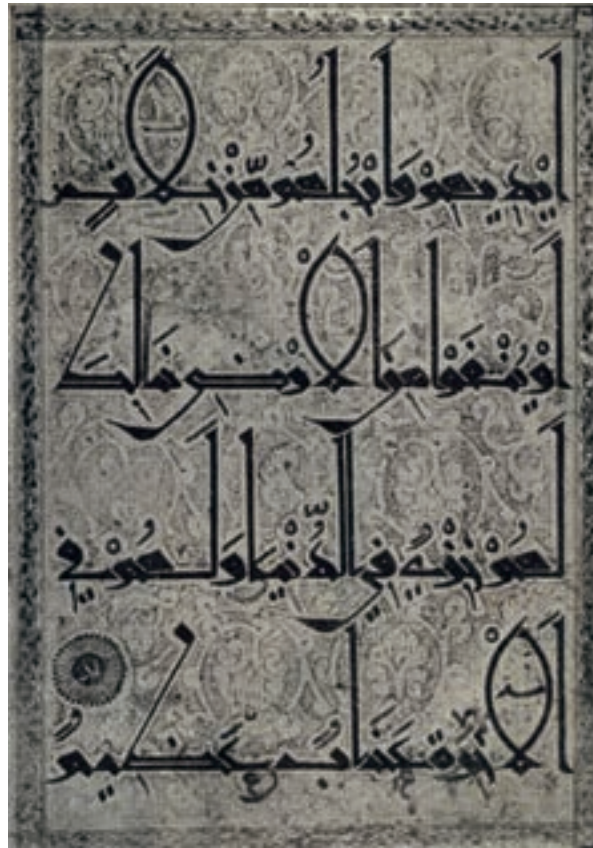 أَيْدِيهِمْ وَأَرْجُلُهُم مِّنْ خِلَافٍ
أَوْ يُنفَوْا مِنَ الْأَرْضِ ذَٰلِكَ
لَهُمْ خِزْيٌ فِي الدُّنْيَا وَلَهُمْ فِي
الْآخِرَةِ عَذَابٌ عَظِيمٌ